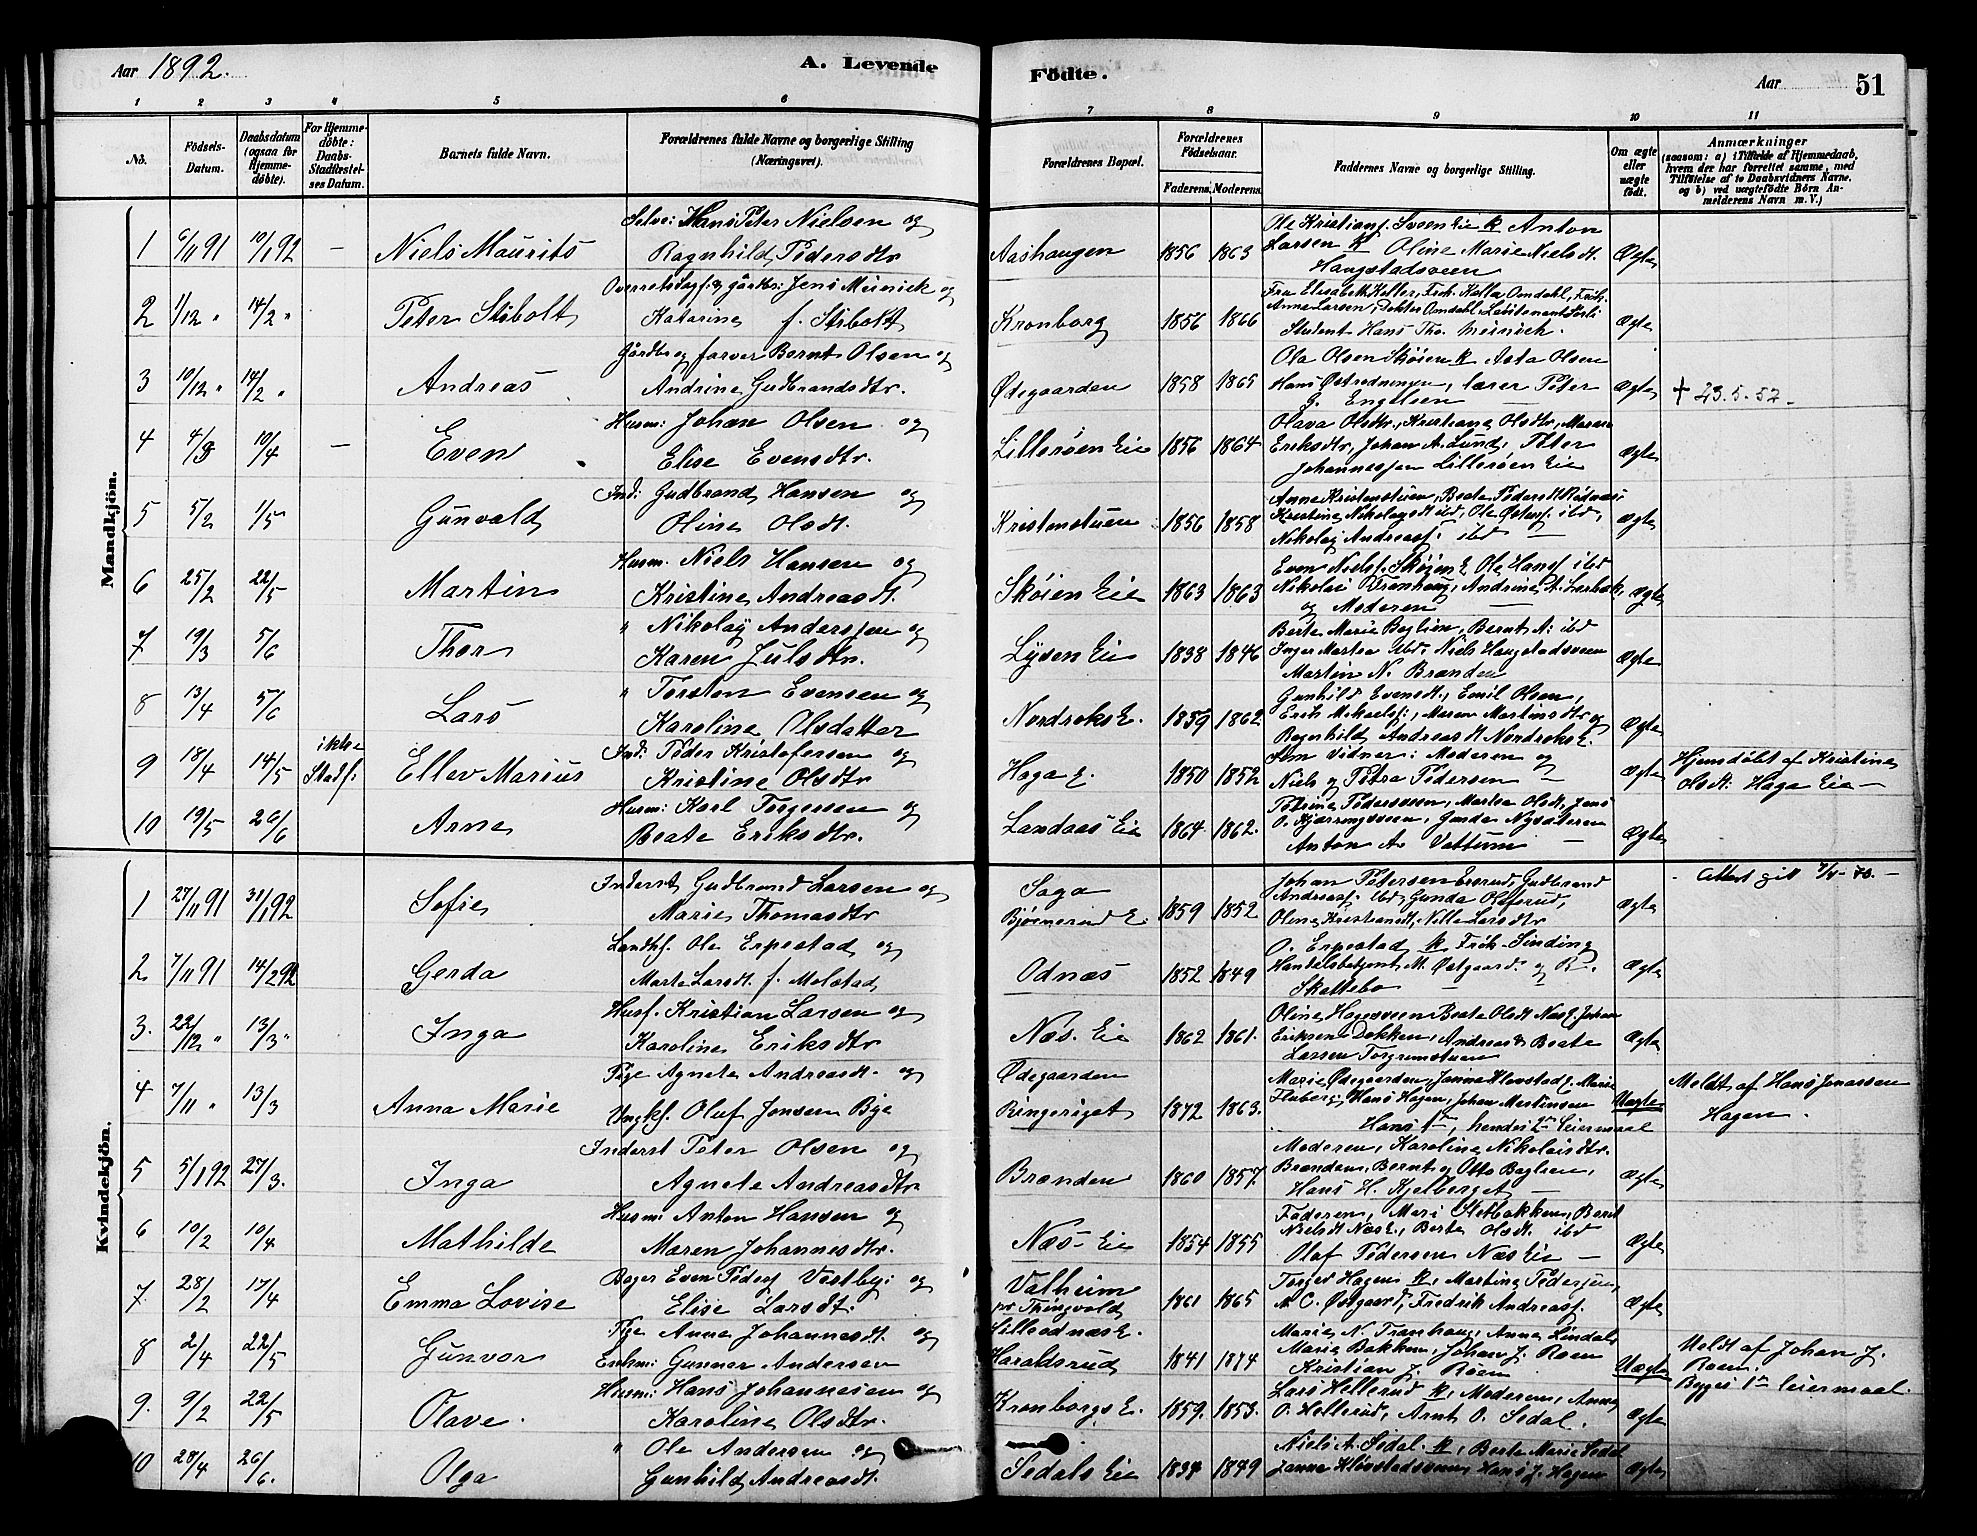 Aar 1892.
A. Levende
Födte.
Aar
51
1 2 3 4 5 6 7 8 9 10 11
No.
Födsels-Datum.
Daabsdatum (ogsaa for Hjemmedöbte).
For Hjemmedöbte: Daabs-Stadfæstelses Datum.
Barnets fulde Navn.
Forældrenes fulde Navne og borgerlige Stilling (Næringsvei).
Forældrenes Bopæl.
Forældrenes Födselsaar.
Faderens. Moderens.
Faddernes Navne og borgerlige Stilling.
Om ægte eller uægte födt.
Anmærkninger
(saasom: a) i Tilfælde af Hjemmedaab, hvem der har forrettet samme, med Tilföielse af to Daabsvidners Navne, og b) ved uægtefödte Börn Anmelderens Navn m. V.)
Mandkjön.
1 6/11 91 10/1 92 – Niels Maurits
Selve: Hans Peter Nielsen og
Ragnhild Pedersdtr
Aashaugen 1856 1863
Ole Kristians. Sveen Eie K Anton
Larsen K Oline Marie Nielsdt.
Haugstadsveen
Ægte
2 1/12 " 14/2 " Peter Stibolt
Overretssagf. & gårdbr: Jens Münick og
Katarine f. Stibolt
Kronborg 1856 1866
Fru Elisabeth Keller, Frk. Kalla Omdahl, Frk.
Anna Larsen, Doktor Omdahl, Løitenant Sorli
Student Hans Tho. Meinich.
Ægte
3 10/12 " 14/2 " Andreas
Gårdbr og farver Bernt Olsen og
Andrine Gudbrandsdtr.
Ødegaarden 1858 1865
Ola Olsen Skøien K Asta Olsen
Hans Østredningen, lærer Peter
G. Engelsen –
Ægte
† 23.5.52 –
4 4/3 10/4 – Even
Husm: Johan Olsen og
Elise Evensdtr.
Lillerøen Eie 1856 1864
Olava Olsdtr, Kristiane Olsdtr, Maren
Eriksdtr, Johan A. Lund, Peter
Johannessen Lillerøen Eie
Ægte
5 5/2 1/5 Gunvald
Ind: Gudbrand Hansen og
Oline Olsdt.
Kristenstuen 1856 1858
Anne Kristenstuen, Beate Pedersdt Rødnæs:
Kristine Nikolaysdt ibd, Ole Østens. ibd,
Nikolaj Andreass: ibd –
Ægte
6 25/2 22/5 Martin
Husm. Niels Hansen og
Kristine Andreasdt.
Skøien Eie 1863 1863
Even Niels. Skøien E Ole Hans ibd
Nikolai Tranhaug, Andrine A.
og Moderen –
Ægte
7 19/3 5/6 Thor
" Nikolaj Andersen og
Karen Julsdtr.
Lysen Eie 1838 1846
Berte Marie Baglien, Bernt A: ibd
Inger Martea ibd, Niels Haugstadsveen
Martin N. Branden
Ægte
8 13/4 5/6 Lars
" Torsten Evensen og
Karoline Olsdatter
Nordraks E. 1859 1862
Gunhild Evensdt., Emil Olsen,
Erik Mikaels:, Maren Martinsdtr og
Ragnhild Andreasdt Nordraks E.
Ægte
9 18/4 14/5 ikke
Stadf: Ellev Marius
Ind: Peder Kristofersen og
Kristine Olsdtr
Haga E. 1850 1852
Som Vidner: Moderen og
Niels og Petra Pedersen –
Ægte
Hjemdøbt af Kristine
Olsdt: Haga Eie –
10 19/5 26/6 Arne
Husm: Karl Torgersen og
Beate Eriksdtr.
Landaas Eie 1864 1862.
Petrine Pedersveen, Martea Olsdt, Jens
O. Kjærringsveen, Gunda Nysæteren
Anton A. Vattum –
Ægte
Kvindekjön.
1 27/11 91 31/1 92 Sofie
Inderst Gudbrand Larsen og
Marie Thomasdtr
Saga
Bjørnerud E. 1859 1852
Johan Petersen Enerud, Gudbrand
Andreass: ibd, Gunda Olserud,
Oline Kristiansdt, Nille Larsdtr
Ægte
– Attest git 7/4-70. –
2 7/11 91 14/2 92 Gerda
Landhf. Ole Erpestad og
Marte Larsdt. f. Molstad
Odnæs 1852 1849
O. Erpestad K Frk. Sinding
Handelsbetjent M. Østgaard og R.
Skattebo –
Ægte
3. 22/12 " 13/3 " Inga
Husf. Kristian Larsen og
Karoline Eriksdtr
Næs. Eie 1862 1861.
Oline Hagesveen Beate Olsdt Næs E. Johan
Eriksen Dokken, Andreas & Beate
Larsen Torgrimstuen
Ægte
4 7/11 " 13/3 Anna Marie
Pige Agnete Andreasdt. og
Ungkf. Oluf Jensen Bye
Ødegaarden
Ringeriget 1872 1863.
Marie Ødegaarden, Janna Klevstad E. Marie
Fluberg, Hans Hagen, Johan Martinsen
Hans 1ste, hendes 2det Leiermaal
Uægte
Meldt af Hans Jonassen
Hagen.
5 5/1 92 27/3. Inga
Inderst Peter Olsen og
Agnete Andreasdtr.
Branden 1860 1857.
Moderen, Karoline Nikolaisdtr.
Branden, Bernt og Otto Baglien,
Hans H. Kjelberget –
Ægte
6 10/2 10/4 Mathilde
Husm: Anton Hansen og
Maren Johannesdtr.
Næs- Eie 1854 1855
Faderen, Mari Sletbakken, Bernt
Nielsdt Næs E, Berte Olsdt. ibd
Olaf Pedersen Næs Eie –
Ægte
7 28/2 17/4 Emma Lovise
Bager Even Peders Vestby: og
Elise Larsdt:
Valheim
pr Thingvold 1861 1865
Torger Hagen K, Martine Pedersen,
M. C. Østgaard, Fredrik Andreass.
Ægte
8 2/4 22/5 Gunvor
Pige Anne Johannesdt. og
Enkm: Gunnar Andersen
Lilleodnæs E.
Haraldsrud 1841 1874
Marie N. Tranhaug, Anne Lindals
Marie Bakken, Johan J. Roen
Kristian J. Røen
Uægte
Meldt af Johan J.
Roen.
Begges 1ste leiermaal.
9. 9/2 22/5 Olave.
Husm: Hans Johannesen og
Karoline Olsdtr.
Kronborgs E. 1859. 1853.
Lars Hellerud K, Moderen, Anne
O. Hellerud, Arnt O. Sedal.
Ægte
10 28/4 26/6. Olga
" Ole Andersen og
Gunhild Andreasdt.
Sedals Eie 1834 1849
Niels A. Sedal. K, Berte Marie Sedal
Janna Kløvstadsveen, Hans J. Hagen
Ægte